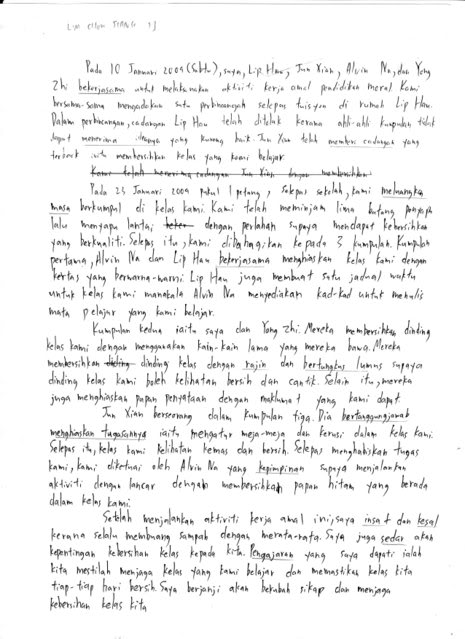 Lim Chen
Pada 10 Januari 2009 (Sabtu), saya, Lip Hau, Jun Xian, Alvin Na, dan Yong
Zhi bekerjasama untuk melaksanakan aktiviti kerja amal pendidikan moral. Kami
bersama-sama mengadakan satu perbincangan selepas tuisyen di rumah Lip Hau.
Dalam perbincangan, cadangan Lip Hau telah ditolak kerana ahli-ahli kumpulan tidak
dapat menerima ideanya yang kurang baik. Jun Xian telah memberi cadangan yang
terbaik iaitu membersihkan kelas yang kami belajar.
Kami telah menerima cadangan Jun Xian dengan membersihkan
Pada 23 Januari 2009 pukul 1 petang, selepas sekolah, kami meluangkan
masa berkumpul di kelas kami. Kami telah meminjam lima batang penyapu
lalu menyapu lantai dengan perlahan supaya mendapat kebersihan
yang berkualiti. Selepas itu, kami dibahagikan kepada 3 kumpulan. Kumpulan
pertama, Alvin Na dan Lip Hau bekerjasama menghiaskan kelas kami dengan
kertas yang berwarna-warni. Lip Hau juga membuat satu jadual waktu
untuk kelas kami manakala Alvin Na menyediakan kad-kad untuk menulis
mata pelajar yang kami belajar.
Kumpulan kedua iaitu saya dan Yong Zhi. Mereka membersihkan dinding
kelas kami dengan menggunakan kain-kain lama yang mereka bawa. Mereka
membersihkan dinding dinding kelas dengan rajin dan bertungkus lumus supaya
dinding kelas kami boleh kelihatan bersih dan cantik. Selain itu, mereka
juga menghiaskan papan penyataan dengan maklumat yang kami dapat.
Jun Xian berseorang dalam kumpulan tiga. Dia bertanggungjawab
menghiaskan tugasannya iaitu mengatur meja-meja dan kerusi dalam kelas kami.
Selepas itu, kelas kami kelihatan kemas dan bersih. Selepas menghabiskan tugas
kami, kami diketuai oleh Alvin Na yang kepimpinan supaya menjalankan
aktiviti dengan lancar dengan membersihkan papan hitam yang berada
dalam kelas kami.
Setelah menjalankan aktiviti kerja amal ini, saya insaf dan kesal
kerana selalu membuang sampah dengan merata-rata. Saya juga sedar akan
kepentingan kebersihan kelas kepada kita. Pengajaran yang saya dapati ialah
kita mestilah menjaga kelas yang kami belajar dan memastikan kelas kita
tiap-tiap hari bersih. Saya berjanji akan berubah sikap dan menjaga
kebersihan kelas kita